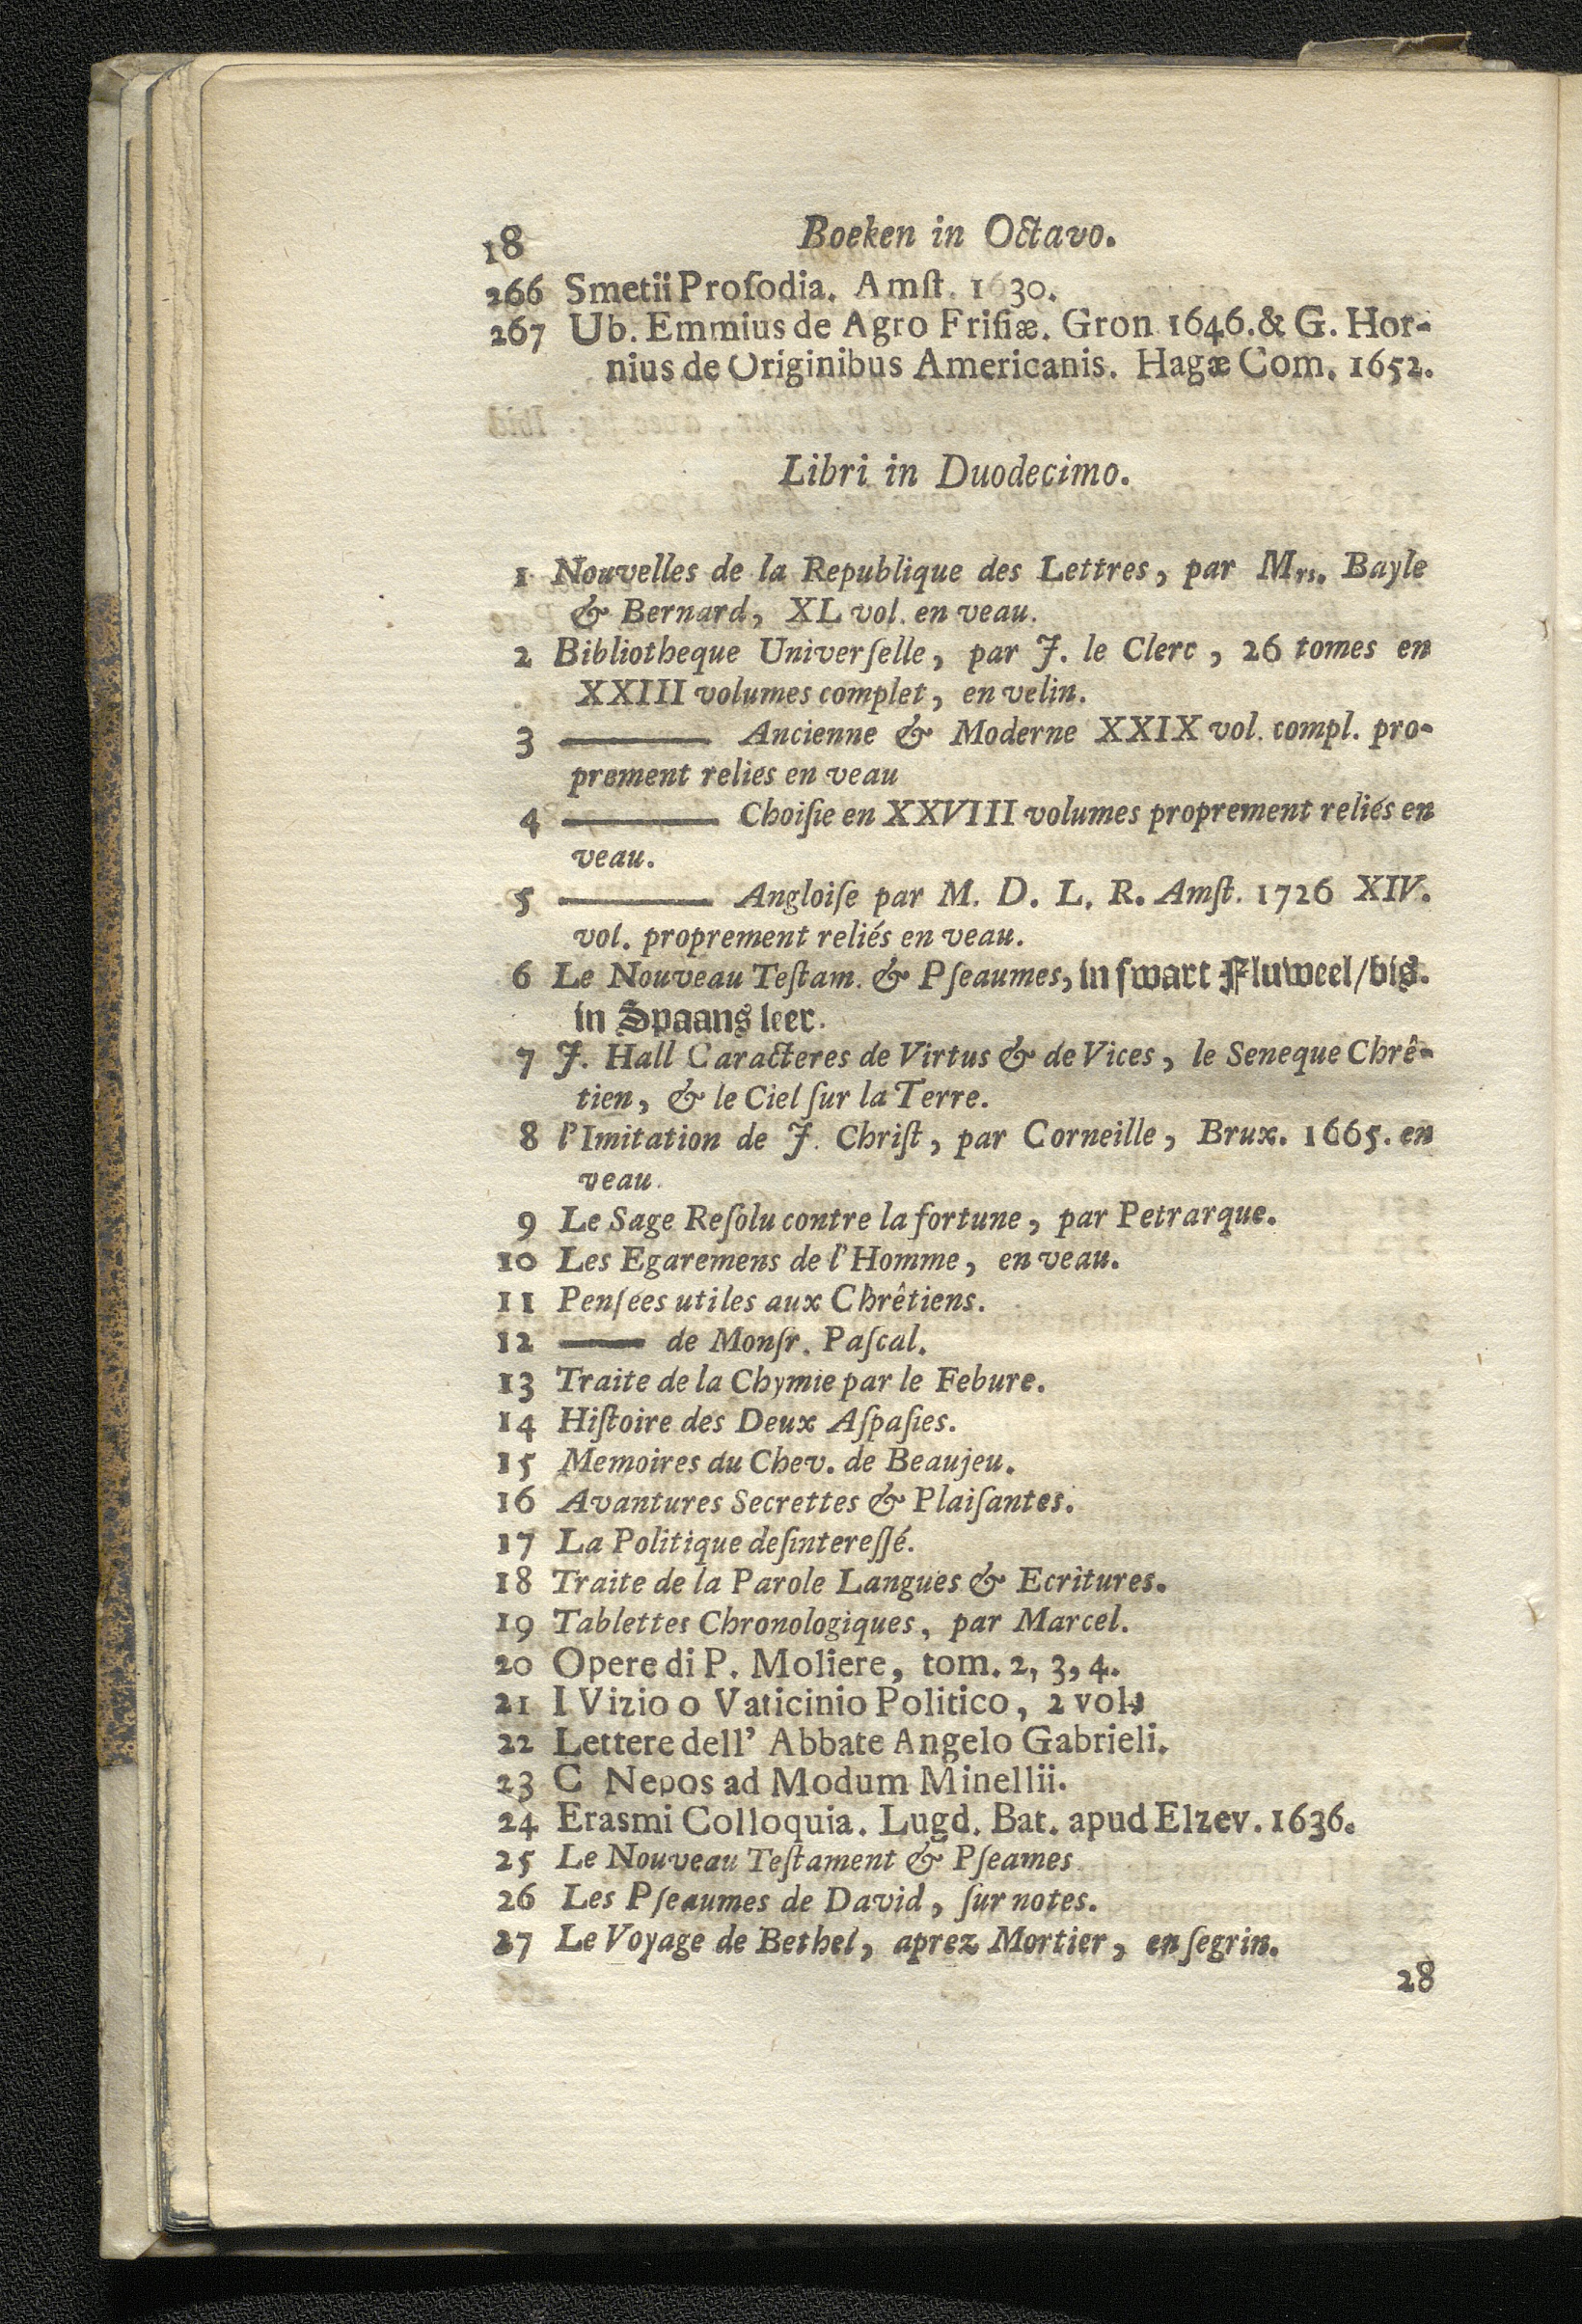 18 Boeken in Octavo.
266 Smetii Proſodia. Amſt. 1630.
267 Ub. Emmius de Agro Friſiæ. Gron 1646. & G. Hor-
nius de Originibus Americanis. Hagæ Com. 1652.
Libri in Duodecimo.
1 Nouvelles de la Republique des Lettres, par Mrs. Bayle
& Bernard, XL vol. en veau.
2 Bibliotheque Univerſelle, par J. le Clerc, 26 tomes en
XXIII volumes complet, en velin.
3 ——— Ancienne & Moderne XXIX vol. compl. pro-
prement relies en veau
4 ——— Choiſie en XXVIII volumes proprement reliés en
veau.
5 ——— Angloiſe par M. D. L. R. Amſt. 1726 XIV.
vol. proprement reliés en veau.
6 Le Nouveau Teſtam. & Pſeaumes, in ſwart Fluweel/ dis.
in Spaans leer.
7 J. Hall Caracteres de Virtus & de Vices, le Seneque Chrê-
tien, & le Ciel ſur la Terre.
8 l'Imitation de J. Chriſt, par Corneille, Brux. 1665. en
veau.
9 Le Sage Reſolu contre la fortune, par Petrarque.
10 Les Egaremens de l'Homme, en veau.
11 Penſées utiles aux Chrêtiens.
12 —— de Monſr. Paſcal.
13 Traite de la Chymie par le Febure.
14 Hiſtoire des Deux Aſpaſies.
15 Memoires du Chev. de Beaujeu.
16 Avantures Secrettes & Plaiſantes.
17 La Politique deſintereſſé.
18 Traite de la Parole Langues & Ecritures.
19 Tablettes Chronologiques, par Marcel.
20 Opere di P. Moliere, tom. 2, 3, 4.
21 I Vizio o Vaticinio Politico, 2 vol.
22 Lettere dell' Abbate Angelo Gabrieli.
23 C Nepos ad Modum Minellii.
24 Erasmi Colloquia. Lugd. Bat. apud Elzev. 1636.
25 Le Nouveau Teſtament & Pſeames
26 Les Pſeaumes de David, ſur notes.
27 Le Voyage de Bethel, aprez Mortier, en ſegrin.
28